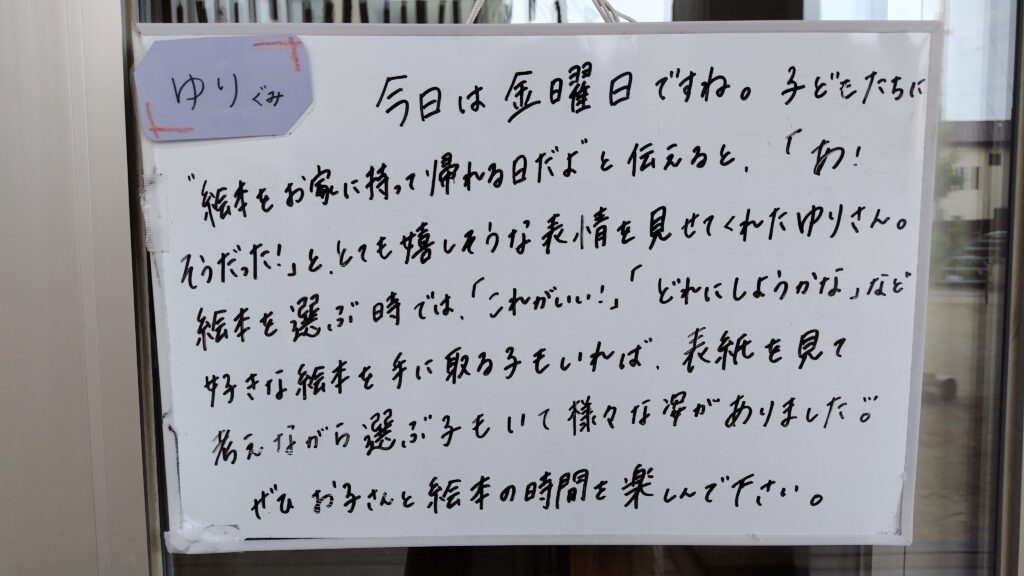 ゆりぐみ
今日は金曜日ですね。子どもたちに
"絵本をお家に持って帰れる日だよ"と伝えると、「あ!
そうだった!」と、とても嬉しそうな表情を見せてくれたゆりさん。
絵本を選ぶ時では、「これがいい!」「どれにしようかな」など
好きな絵本を手に取る子もいれば、表紙を見て
考えながら選ぶ子もいて様々な姿がありました。
ぜひお子さんと絵本の時間を楽しんで下さい。